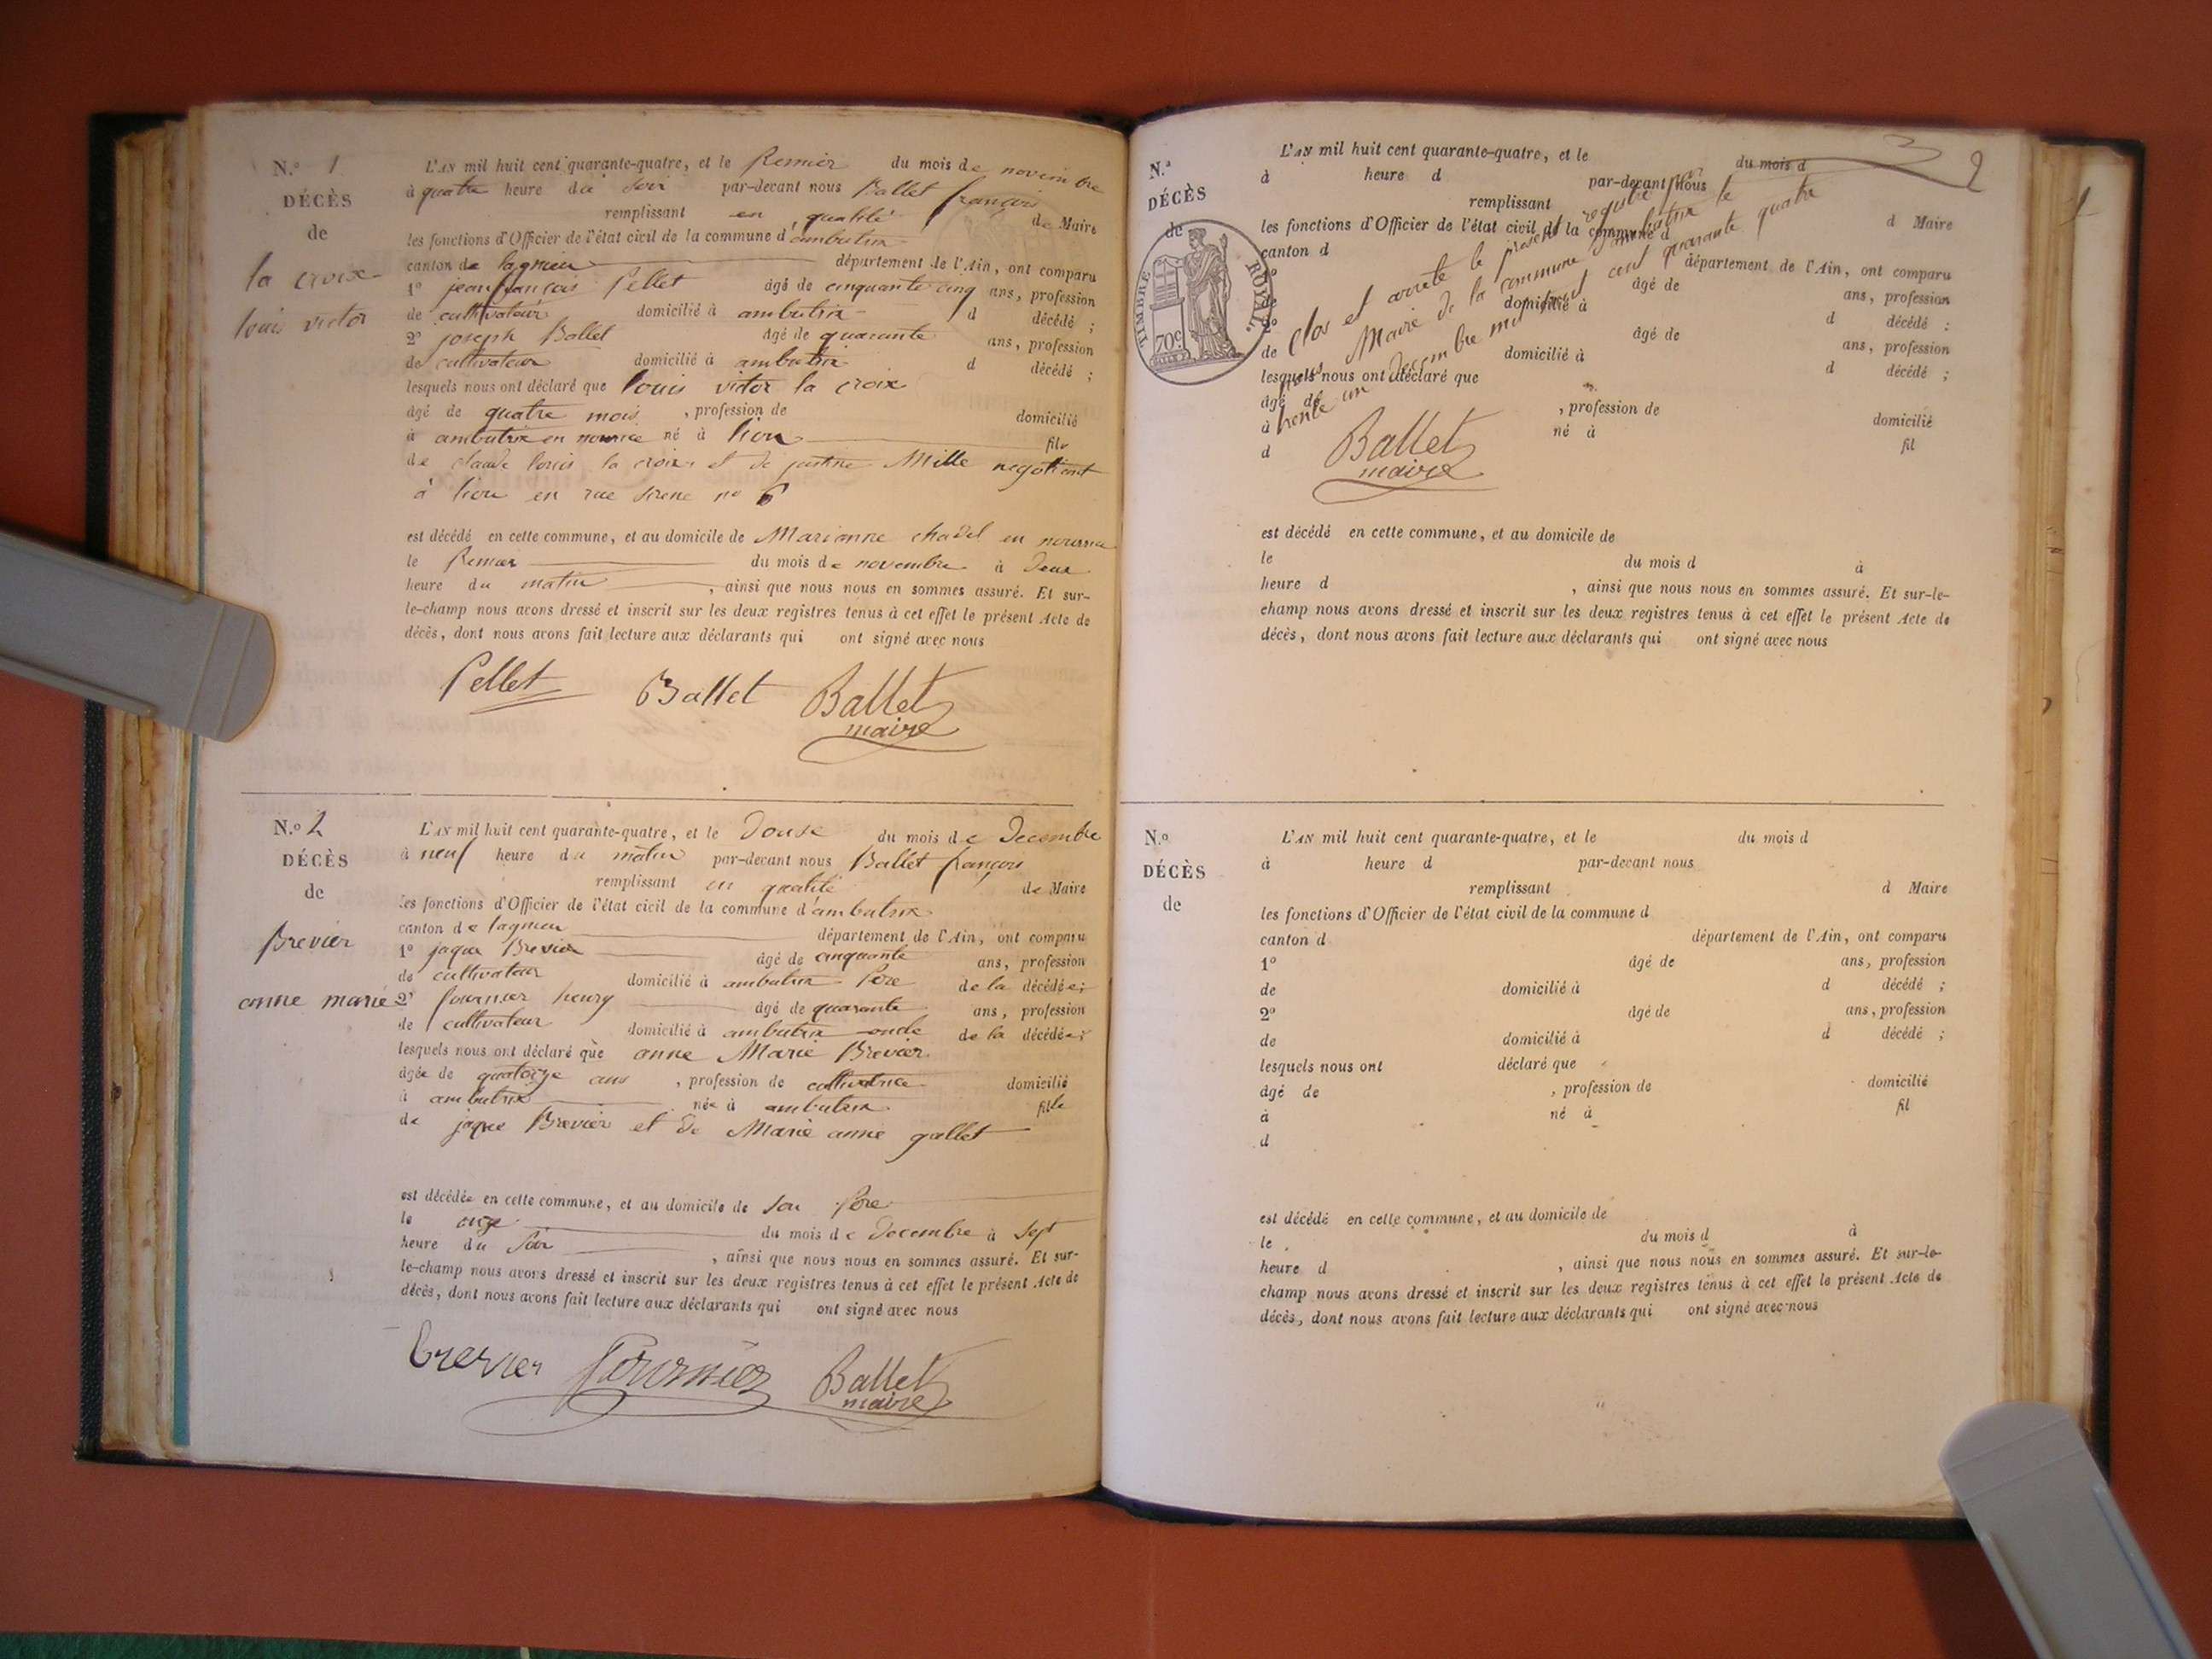 N.° 1
DÉCÈS
de
la croix
louis victor
L'AN mil huit cent quarante-quatre, et le premier du mois de novembre
à quatre heure du soir par-devant nous Ballet françois
remplissant en qualité de Maire
les fonctions d'Officier de l'état civil de la commune d'ambutrix
canton de lagnieu département de l'Ain, ont comparu
1° jean françois Pellet âgé de cinquante cinq ans, profession
de cultivateur domicilié à ambutrix d décédé ;
2° joseph Ballet âgé de quarante ans, profession
de cultivateur domicilié à ambutrix d décédé ;
lesquels nous ont déclaré que louis victor la croix
âgé de quatre mois , profession de domicilié
à ambutrix en nourrice né à lion fils
de claude louis la croix et de justine Mille negotiant
à lion en rue sirene n° 6
est décédé en cette commune, et au domicile de Marianne chadel en nourrice
le premier du mois de novembre à deux
heure du matin , ainsi que nous nous en sommes assuré. Et sur-
le-champ nous avons dressé et inscrit sur les deux registres tenus à cet effet le présent Acte de
décès, dont nous avons fait lecture aux déclarants qui ont signé avec nous
Pellet Ballet Ballet
maire
N.° 2
DÉCÈS
de
Brevier
anne marie
L'AN mil huit cent quarante-quatre, et le douse du mois de Decembre
à neuf heure du matin par-devant nous Ballet françois
remplissant en qualité de Maire
les fonctions d'Officier de l'état civil de la commune d'ambutrix
canton de lagnieu département de l'Ain, ont comparu
1° jaque Brevier âgé de cinquante ans, profession
de cultivateur domicilié à ambutrix Père de la décédée;
2° fournier henry âgé de quarante ans, profession
de cultivateur domicilié à ambutrix oncle de la décédée;
lesquels nous ont déclaré que anne Marie Brevier
âgée de quatorze ans , profession de cultivatrice domicilié
à ambutrix née à ambutrix fille
de jaque Brevier et de Marie anne gallet
est décédée en cette commune, et au domicile de son Père
le onze du mois de Decembre à sept
heure du soir , ainsi que nous nous en sommes assuré. Et sur-
le-champ nous avons dressé et inscrit sur les deux registres tenus à cet effet le présent Acte de
décès, dont nous avons fait lecture aux déclarants qui ont signé avec nous
brevier fournier Ballet
maire
3 2
N.°
DÉCÈS
de
TIMBRE ROYAL.
70c
L'AN mil huit cent quarante-quatre, et le du mois d
à heure d par-devant nous
remplissant d Maire
les fonctions d'Officier de l'état civil de la commune d
canton d département de l'Ain, ont comparu
1° âgé de ans, profession
de domicilié à d décédé ;
2° âgé de ans, profession
de domicilié à d décédé ;
lesquels nous ont déclaré que
âgé de , profession de domicilié
à né à fil
d
clos et arrêté le present registre par
nous Maire de la commune d'ambutrix le
trente un Decembre mil huit cent quarante quatre
Ballet
maire
est décédé en cette commune, et au domicile de
le du mois d à
heure d , ainsi que nous nous en sommes assuré. Et sur-le-
champ nous avons dressé et inscrit sur les deux registres tenus à cet effet le présent Acte de
décès, dont nous avons fait lecture aux déclarants qui ont signé avec nous
N.°
DÉCÈS
de
L'AN mil huit cent quarante-quatre, et le du mois d
à heure d par-devant nous
remplissant d Maire
les fonctions d'Officier de l'état civil de la commune d
canton d département de l'Ain, ont comparu
1° âgé de ans, profession
de domicilié à d décédé ;
2° âgé de ans, profession
de domicilié à d décédé ;
lesquels nous ont déclaré que
âgé de , profession de domicilié
à né à fil
d
est décédé en cette commune, et au domicile de
le du mois d à
heure d , ainsi que nous nous en sommes assuré. Et sur-le-
champ nous avons dressé et inscrit sur les deux registres tenus à cet effet le présent Acte de
décès, dont nous avons fait lecture aux déclarants qui ont signé avec nous